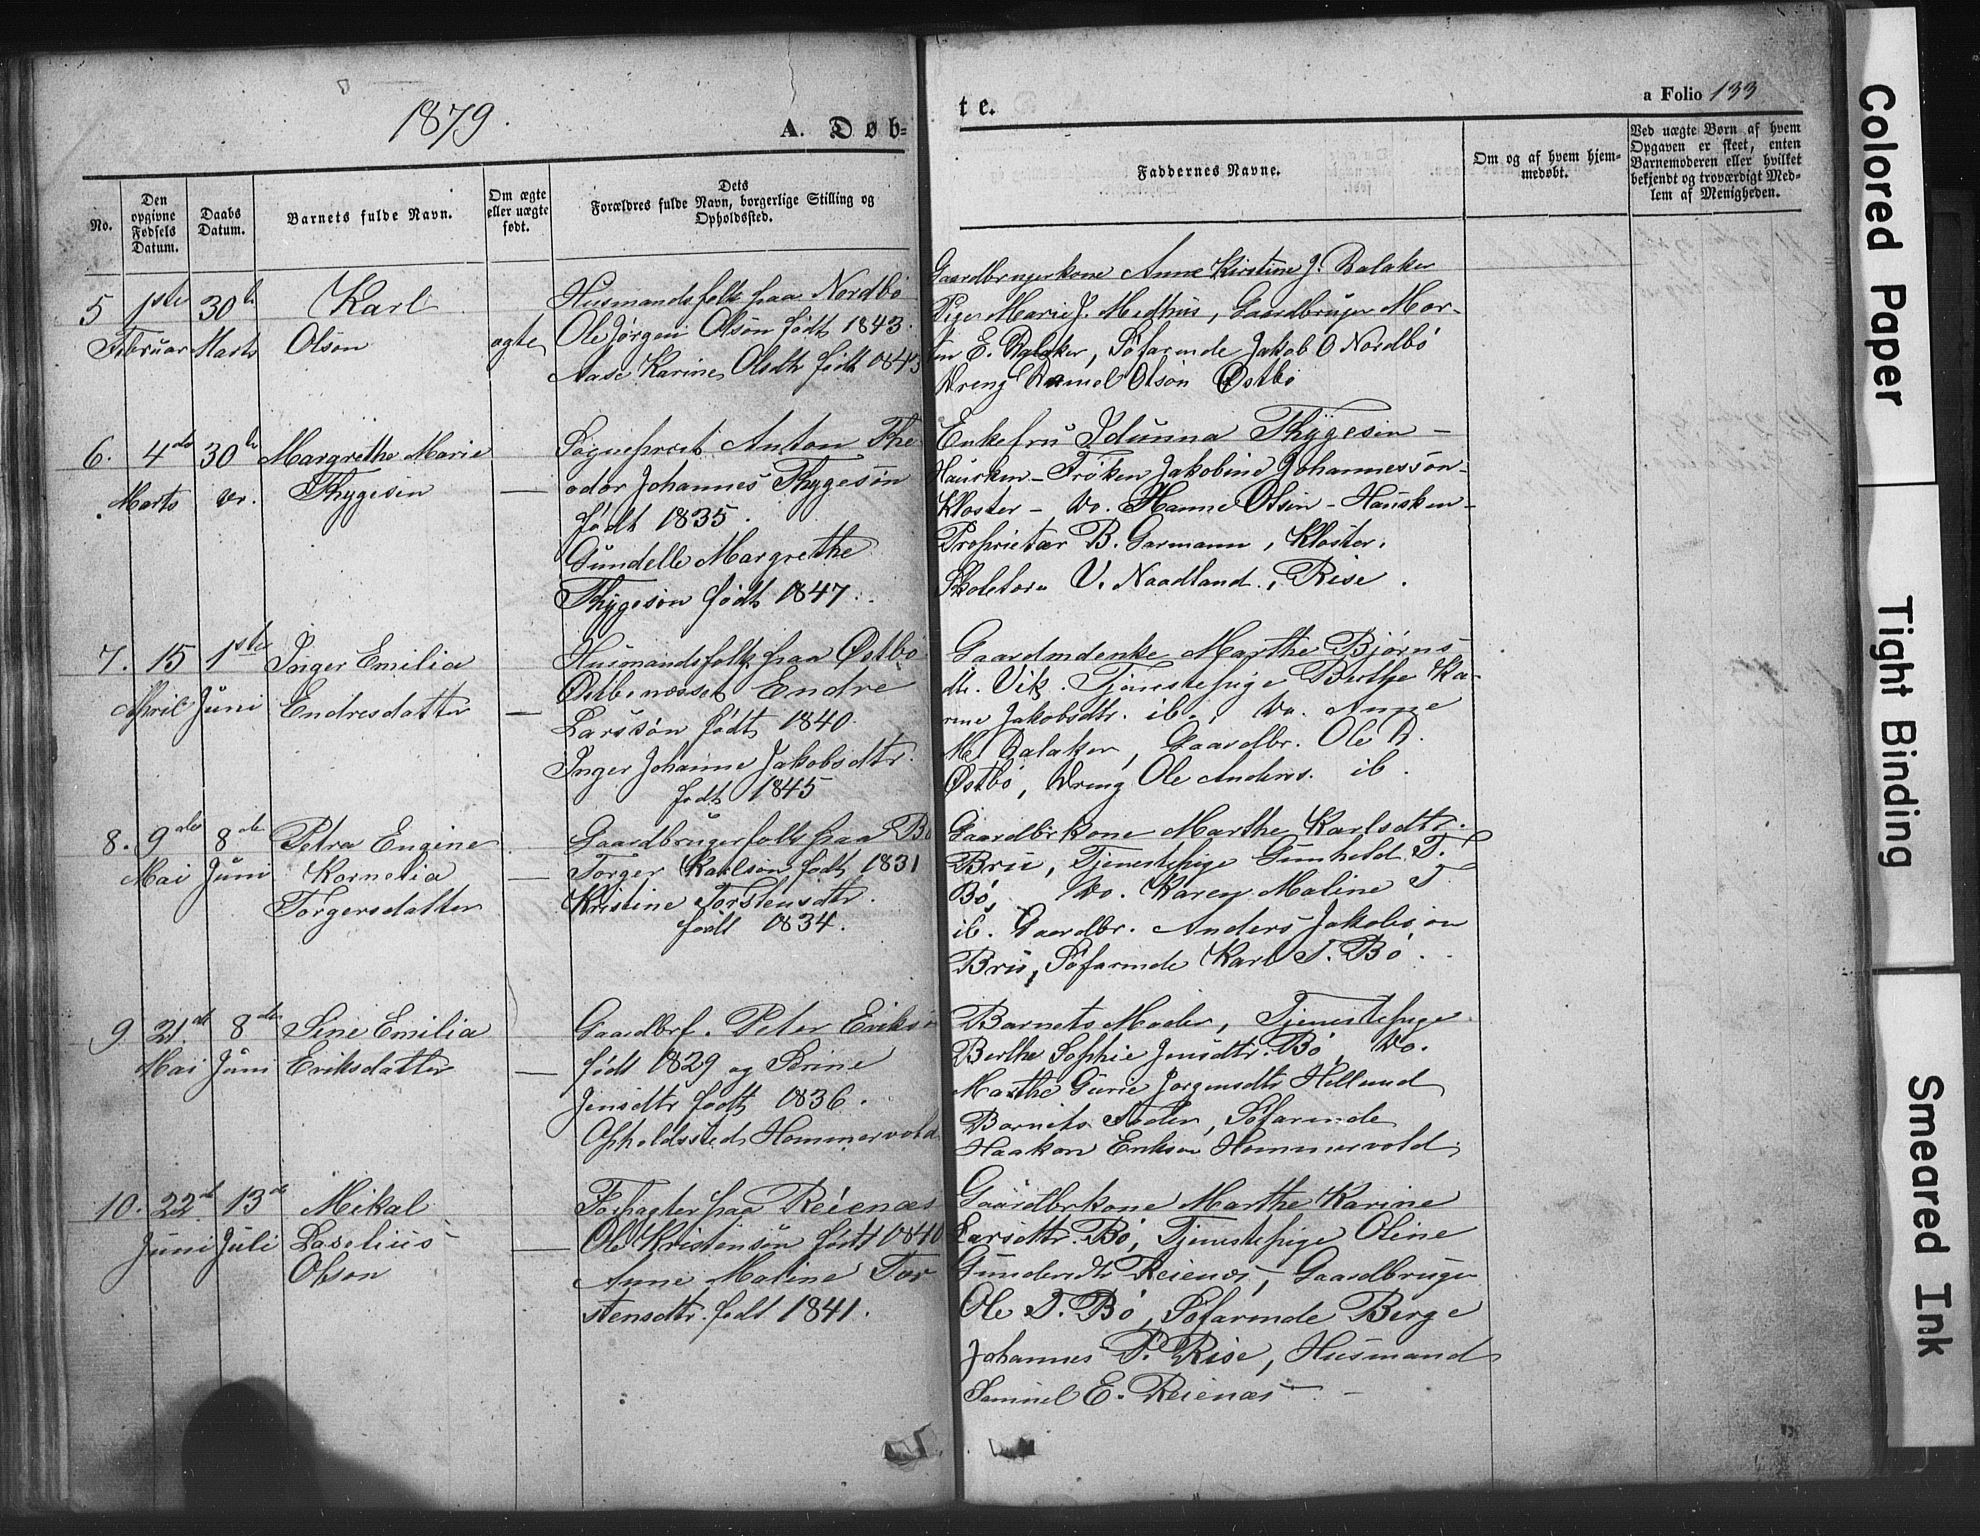 1879.
A. Døb-
No.
Den opgivne Fødsels Datum.
Daabs Datum.
Barnets fulde Navn.
Om ægte eller uægte født.
Dets Forældres fulde Navn, borgerlige Stilling og Opholdssted.
5 1ste 30te Karl Husmandsfolk paa Nordbø
Februar Marts Olson ægte Ole Jørgen Olsøn født 1843.
Aase Karine Olsdtr født 1845
6. 4de 30te Margrethe Marie Sogneprest Anton The
Marts Thygesen — odor Johannes Thygesøn
født 1835.
Gundelle Margrethe
Thygesøn født 1847.
7. 15 1ste Inger Emilia Husmandsfolk paa Østbø
April Juni Endresdatter — Østbønæsset Endre
Larssøn født 1840.
Inger Johanne Jakobsdtr.
født 1845
8. 9de 8de Petra Engine Gaardbrugerfolk paa Bø
Mai Juni Kornelia — Torger Karlson født 1831
Torgersdatter Kristine Torstensdtr.
født 1834.
9 21de 8de Sine Emilia — Gaardbrf. Peter Eriksn
Mai Juni Eriksdatter — født 1829 og Serine
Jensdtr født 1836.
Opholdssted Hommervold
10. 22de 13de Mikal Forpagter paa Reienæs
Juni Juli Laselius — Ole Kristensøn født 1840
Olson Anne Maline Tor
stensdtr. født 1841.
te.
a Folio 133
Faddernes Navne.
Om og af hvem hjemmedøbt.
Ved uægte Børn af hvem
Opgaven er skeet, enten
Barnemoderen eller hvilket
bekjendt og troværdigt Med-
lem af Menigheden.
Gaardbrugerkone Anne Kirstine J. Dalaker
Pige Marie J. Medhus, Gaardbruger Mor-
ten E. Dalaker, Søfarende Jakob O Nordbø
Dreng Daniel Olsøn Østbø
Enkefru Idunna Thygesen —
Hausken — Frøken Jakobine Johannessøn —
Kloster — Do. Hanne Olsen — Hausken —
Proprietær B. Garmann, Kloster.
Skolelær. V. Naadland, Rise.
Marthe Bjørns
dtr. Vik. Tjenestepige Berthe Ka-
rine Jakobsdtr. ib., Do. Anne
M Dalaker, Gaardbr. Ole A.
Østbø, Dreng Ole Anders. ib.
Gaardbrkone Marthe Karlsdtr.
Bru, Tjenestepige Gunhild T.
Bø, Do. Karen Maline T
ib. Gaardbr. Anders Jakobson
Bru, Søfarende Karl T. Bø.
Barnets Moder, Tjenestepige
Berthe Sophie Jensdtr. Bø, Do.
Marthe Gurie Jørgensdtr Helland
Barnets Fader, Søfarende
Haakon Eriksen Hommervold.
Gaardbrkone Marthe Karine
Larsdtr. Bø, Tjenestepige Oline
Gundersdtr Reienæs, Gaardbruger
Ole T. Bø, Søfarende Berge
Johannes P. Rise, Husmand
Samuel E. Reienæs —
Colored Paper
Tight Binding
Smeared Ink